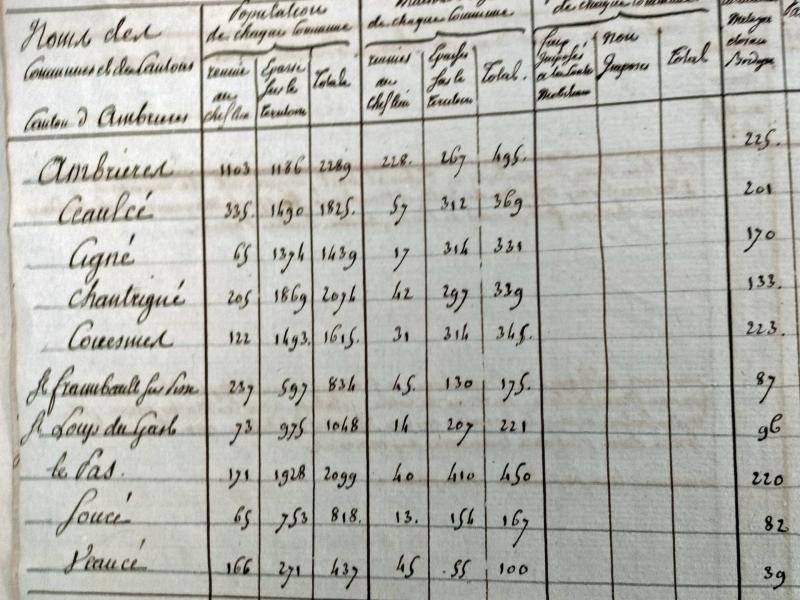 Noms des Population
de chaque Commune de chaque Commune de chaque Commune
Communes et des Cantons réunie Eparse Totale réunies Eparses Total. non total Métayers
au sur le au sur le Imposés
Canton d'Ambrieres chef lieu territoire chef lieu territoire
Ambrieres 1103 1186 2289 228. 267 495. 225.
Ceaulcé 335. 1490 1825. 57 312 369 201
Cigné 65 1374 1439 17 314 331 170
Chantrigué 205 1869 2074 42 297 339 133.
Couesmes 122 1493. 1615. 31 314 345. 223.
St frambault sur Pisse 237 597 834 45. 130 175. 87
St Loup du Gast 73 975 1048 14 207 221 96
le Pas. 171 1928 2099 40 410 450 220
Soucé 65 753 818. 13. 154 167 82
Veaucé 166 271 437 45 55 100 39